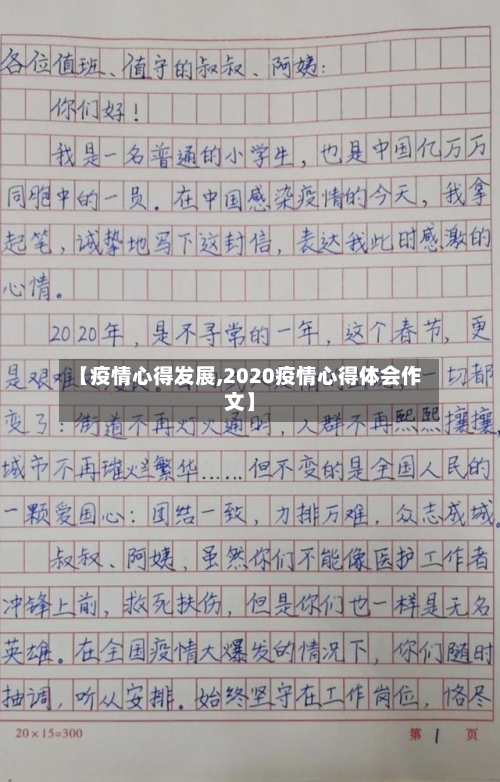 各位值班、值守的叔叔、阿姨：
你们好！
我是一名普通的小学生，也是中国亿万万
同胞中的一员。在中国感染疫情的今天，我拿
起笔，诚挚地写下这封信，表达我此时感激的
心情。
2020年，是不寻常的一年，这个春节，更
【疫情心得发展,2020疫情心得体会作
文】
是艰难 一切都
变了：街道不再灯火通明，人群不再熙熙攘攘，
城市不再璀烂繁华……但不变的是全国人民的
一颗爱国心：团结一致，力排万难，众志成城。
叔叔、阿姨，虽然你们不能像医护工作者
冲锋上前，救死扶伤，但是你们也一样是无名
英雄。在全国疫情大爆发的情况下，你们随时
抽调，听从安排。始终坚守在工作岗位，恪尽
20×15=300 第 1 页